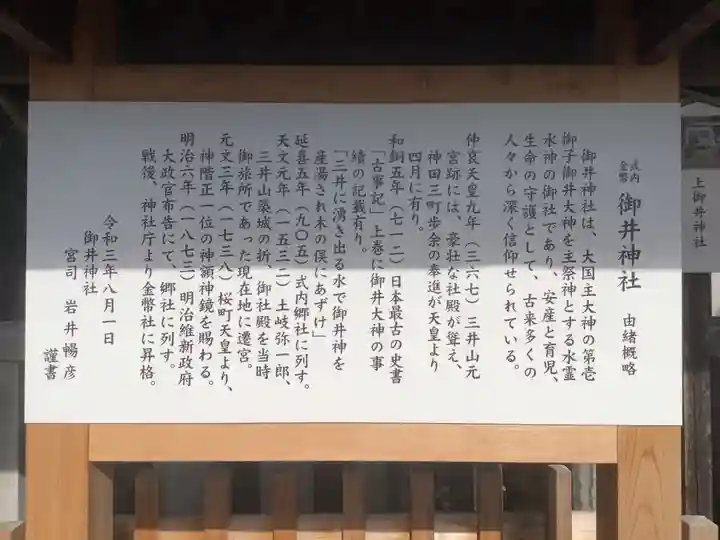 式内
金幣
御井神社 由緒概略
御井神社は、大国主大神の第壱
御子御井大神を主祭神とする水霊
水神の御社であり、安産と育児、
生命の守護として、古来多くの
人々から深く信仰せられている。
仲哀天皇九年(三六七)三井山元
宮跡には、豪壮な社殿が聳え、
神田三町歩余の奉進が天皇より
四月に有り。
和銅五年(七一二)日本最古の史書
「古事記」上巻に御井大神の事
績の記載有り。
「三井に湧き出る水で御井神を
産湯され木の俣にあずけ」
延喜五年(九〇五)式内郷社に列す。
天文元年(一五三二)土岐弥一郎、
三井山築城の折、御社殿を当時
御旅所であった現在地に遷宮。
元文三年(一七三八)桜町天皇より、
神階正一位の神額神鏡を賜わる。
明治六年(一八七三)明治維新政府
大政官布告にて、郷社に列す。
戦後、神社庁より金幣社に昇格。
令和三年八月一日
御井神社
宮司 岩井暢彦
謹書
上御井神社